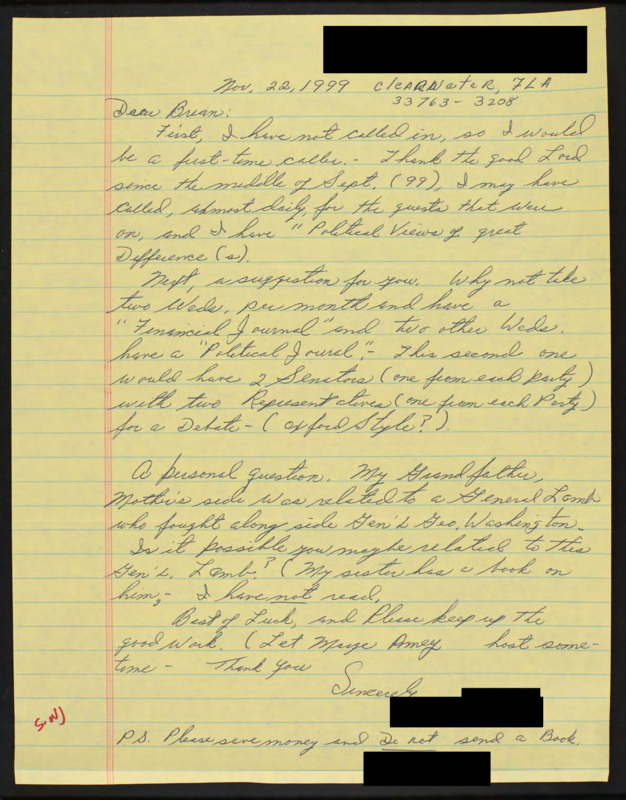 Nov. 22, 1999 Clearwater, FLA
33763-3208
Dear Brian:
First, I have not called in, so I would
be a first-time caller. - Thank the good Lord
since the middle of Sept. (99), I may have
called, almost daily, for the guests that were
on, and I have "Political Views of great
Difference(s).
Next, a suggestion for you. Why not take
two Weds. per month and have a
"Financial Journal" and two other Weds.
have a "Political Joural". - This second one
would have 2 Senators (one from each party)
with two Representatives (one from each Party)
for a Debate - (oxford Style?).
A personal question. My Grandfather,
Mother's side was related to a General Lamb
who fought along side Gen'l Geo. Washington.
Is it possible you maybe related to this
Gen'l. Lamb? (My sister has a book on
him, - I have not read.
Best of Luck, and Please keep up the
good work. (Let Amey host some-
time - Thank You
Sincerely
S.NJ
P.S. Please save money and Do not send a Book.